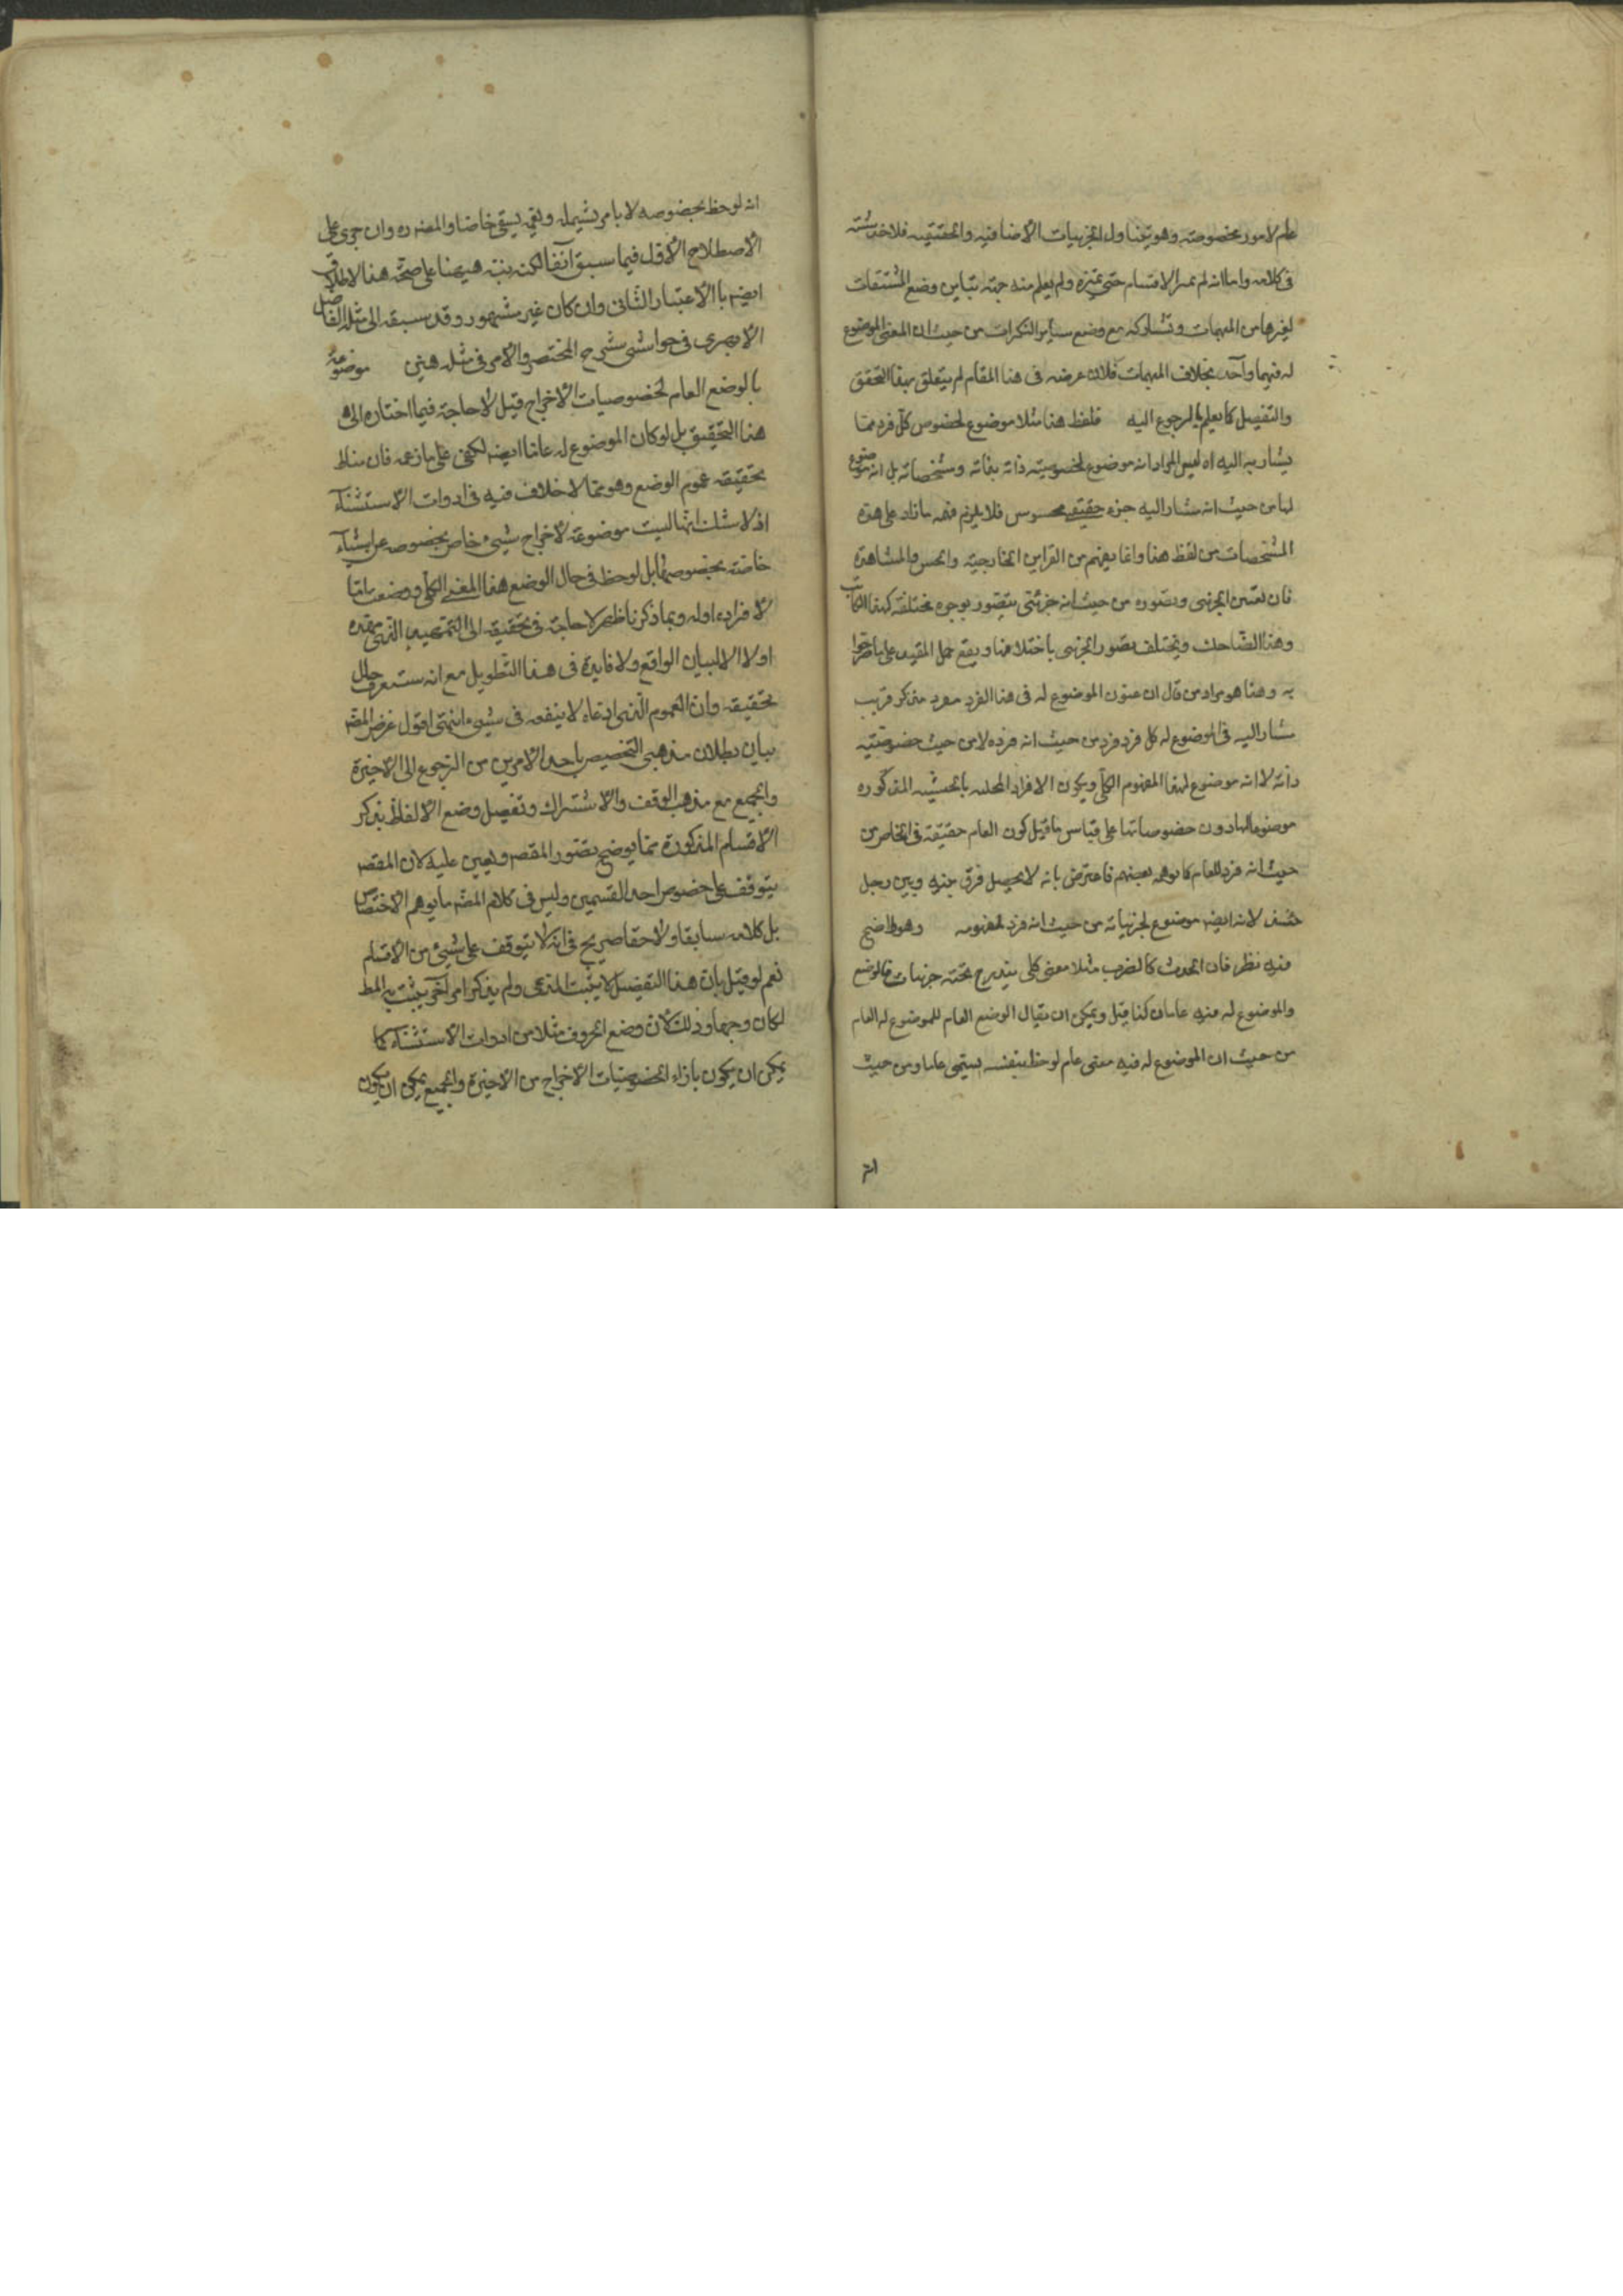 علم لامور بخصوصة وهو يتناول الجزئيات الاضافيه والحقيقيه فلا خدشة
فى كلامه واما انه لم يميز الاقسام حتى تميزه ولم يعلم منه جهة تباين وضع المشتقات
لغيرها من المبهمات وتشاركه مع وضع ساير النكرات من حيث ان المعنى الموضوع
له فيهما واحد بخلاف المبهمات فلان غرضه فى هذا المقام لم يتعلق بهذا التحقق
والتفصيل كما يعلم بالرجوع اليه فلفظ هذا مثلا موضوع لخصوص كل فرد مما
يشار به اليه اه ليس المراد انه موضوع لخصوصيته ذاته بذاته ومشخصاته بل انه موضوع
لها من حيث انه مشار اليه جزء حقيقى محسوس فلا يلزم فهم ما زاد على هذه
المشخصات من لفظ هذا وانما يفهم من القراين الخارجية والحس والمشاهدة
فان تعين الجزئى وتصوره من حيث انه جزئى يتصور بوجوه مختلفة كهذا الكاتب
وهذا الضاحك ويختلف تصور الجزئى باختلافها ويقع حمل المقيد على ما صرحوا
به وهذا هو مراد من قال ان عنون الموضوع له فى هذا الفرد مفرد مذكر قريب
مشار اليه فالموضوع له كل فرد فرد من حيث انه فرده لا من حيث خصوصيته
ذاته لا انه موضوع لهذا المفهوم الكلى ويكون الافراد المحله بالحيثيه المذكوره
موضوعا لها دون خصوصياتها على قياس ما قيل كون العام حقيقة فى الخاص من
حيث انه فرد للعام كما توهمه بعضهم فاعترض بانه لا يحصل فرق بينه وبين رجل
لانه ايضا موضوع لجزئياته من حيث انه فرد لمفهومه وهو واضح
فيه نظر فان الحدث كالضرب مثلا معنى كلى يندرج تحته جزئيات فالوضع
والموضوع له فيه عامان كذا قيل ويمكن ان يقال الوضع العام للموضوع له العام
من حيث ان الموضوع له فيه معنى عام لوحظ بنفسه يسمى عاما ومن حيث
انه
انه لوحظ بخصوصه لا بامر يشمله ويعمه يسمى خاصا والمصنف ره وان جرى على
الاصطلاح الاول فيما سبق آنفا لكنه نبه هيهنا على صحة هذا الاطلاق
ايضا بالاعتبار الثانى وان كان غير مشهور وقد سبقه الى مثله الفاضل
الابهرى فى حواشى شرح المختصر والامر فى مثله هين موضوعة
بالوضع العام لخصوصيات الاخراج قيل لا حاجة فيما اختاره الى
هذا التحقيق بل لو كان الموضوع له عاما ايضا لكفى على ما زعمه فان مناط
تحقيقه عموم الوضع وهو مما لا خلاف فيه فى ادوات الاستثناء
اذ لا شك انها ليست موضوعة لاخراج شيء خاص بخصوصه عن اشياء
خاصة بخصوصها بل لوحظ فى حال الوضع هذا المعنى الكلى ووضعت اما
لافراده او له وبما ذكرنا ظهر لا حاجة فى تحقيقه الى التمهيد الذى مهده
اولا الا لبيان الواقع ولا فايدة فى هذا التطويل مع انه ستعرف حال
تحقيقه وان العموم الذى ادعاه لا ينفعه فى شيء انتهى اقول غرض المصنف
بيان بطلان مذهبى التخصيص باحد الامرين من الرجوع الى الاخيرة
والجميع مع مذهب الوقف والاشتراك وتفصيل وضع الالفاظ بذكر
الاقسام المذكورة مما يوضح تصور المقصد ويعين عليه لان المقصد
يتوقف على خصوص احد القسمين وليس فى كلام المصنف ما يوهم الاختصاص
بل كلامه سابقا ولاحقا صريح فى انه لا يتوقف على شيء من الاقسام
نعم لو قيل بان هذا التفصيل لا يثبت المدعى ولم يذكر امر آخر يثبت به المط
لكان وجها وذلك لان وضع الحروف مثلا من ادوات الاستثناء كما
يمكن ان يكون بازاء الخصوصيات الاخراج من الاخيرة والجميع يمكن ان يكون